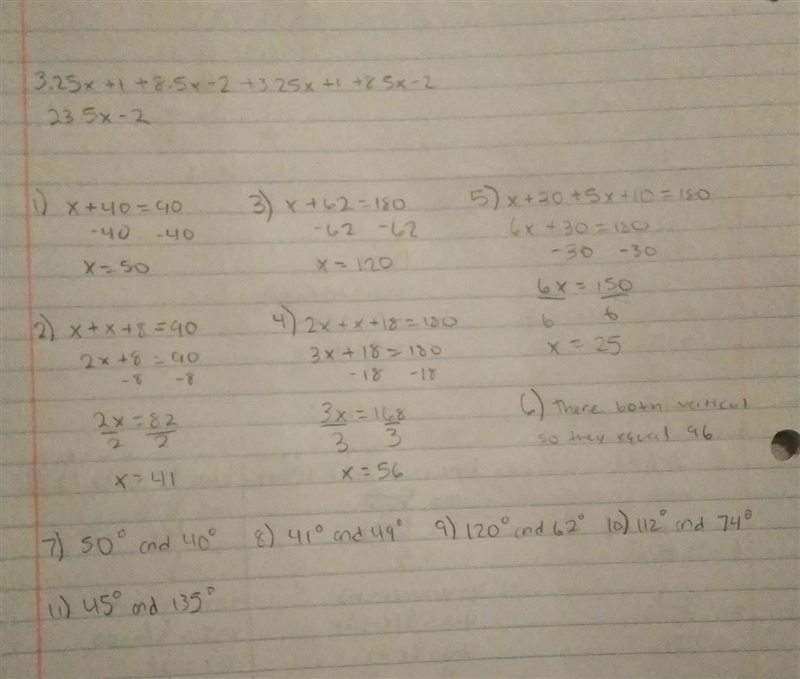 3.25x+1+8.5x-2+3.25x+1+8.5x-2
23.5x-2
1) x+40=90
-40 -40
x=50
2) x+x+8=90
2x+8=90
-8 -8
2x=82
2 2
x=41
3) x+62=180
-62 -62
x=120
4) 2x+x+18=180
3x+18=180
-18 -18
3x=168
3 3
x=56
5) x+20+5x+10=180
6x+30=180
-30 -30
6x=150
6 6
x=25
6) There both vertical
so they equal 96
7) 50° and 40° 8) 41° and 49° 9) 120° and 62° 10) 112° and 74°
11) 45° and 135°